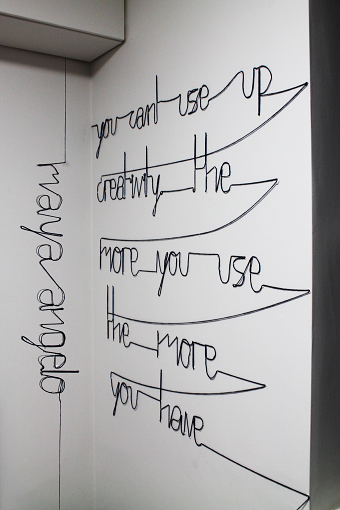 you cant use up
creativity the
more you use
the more
you have
maya angelo